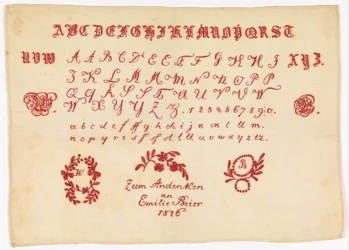 ABCDEFGHIKLMNOPQRST
UVW AABCDEEFFGHHIJ XYZ.
JKLMMNNOPP
QRSSTTUUVVW
WXYYZZ. 1234567890.
abcdefffghhijkклllm.
nopqrsſstßtuuvwxyztz.
W B
Zum Andenken
an
Emilie Beier
1826